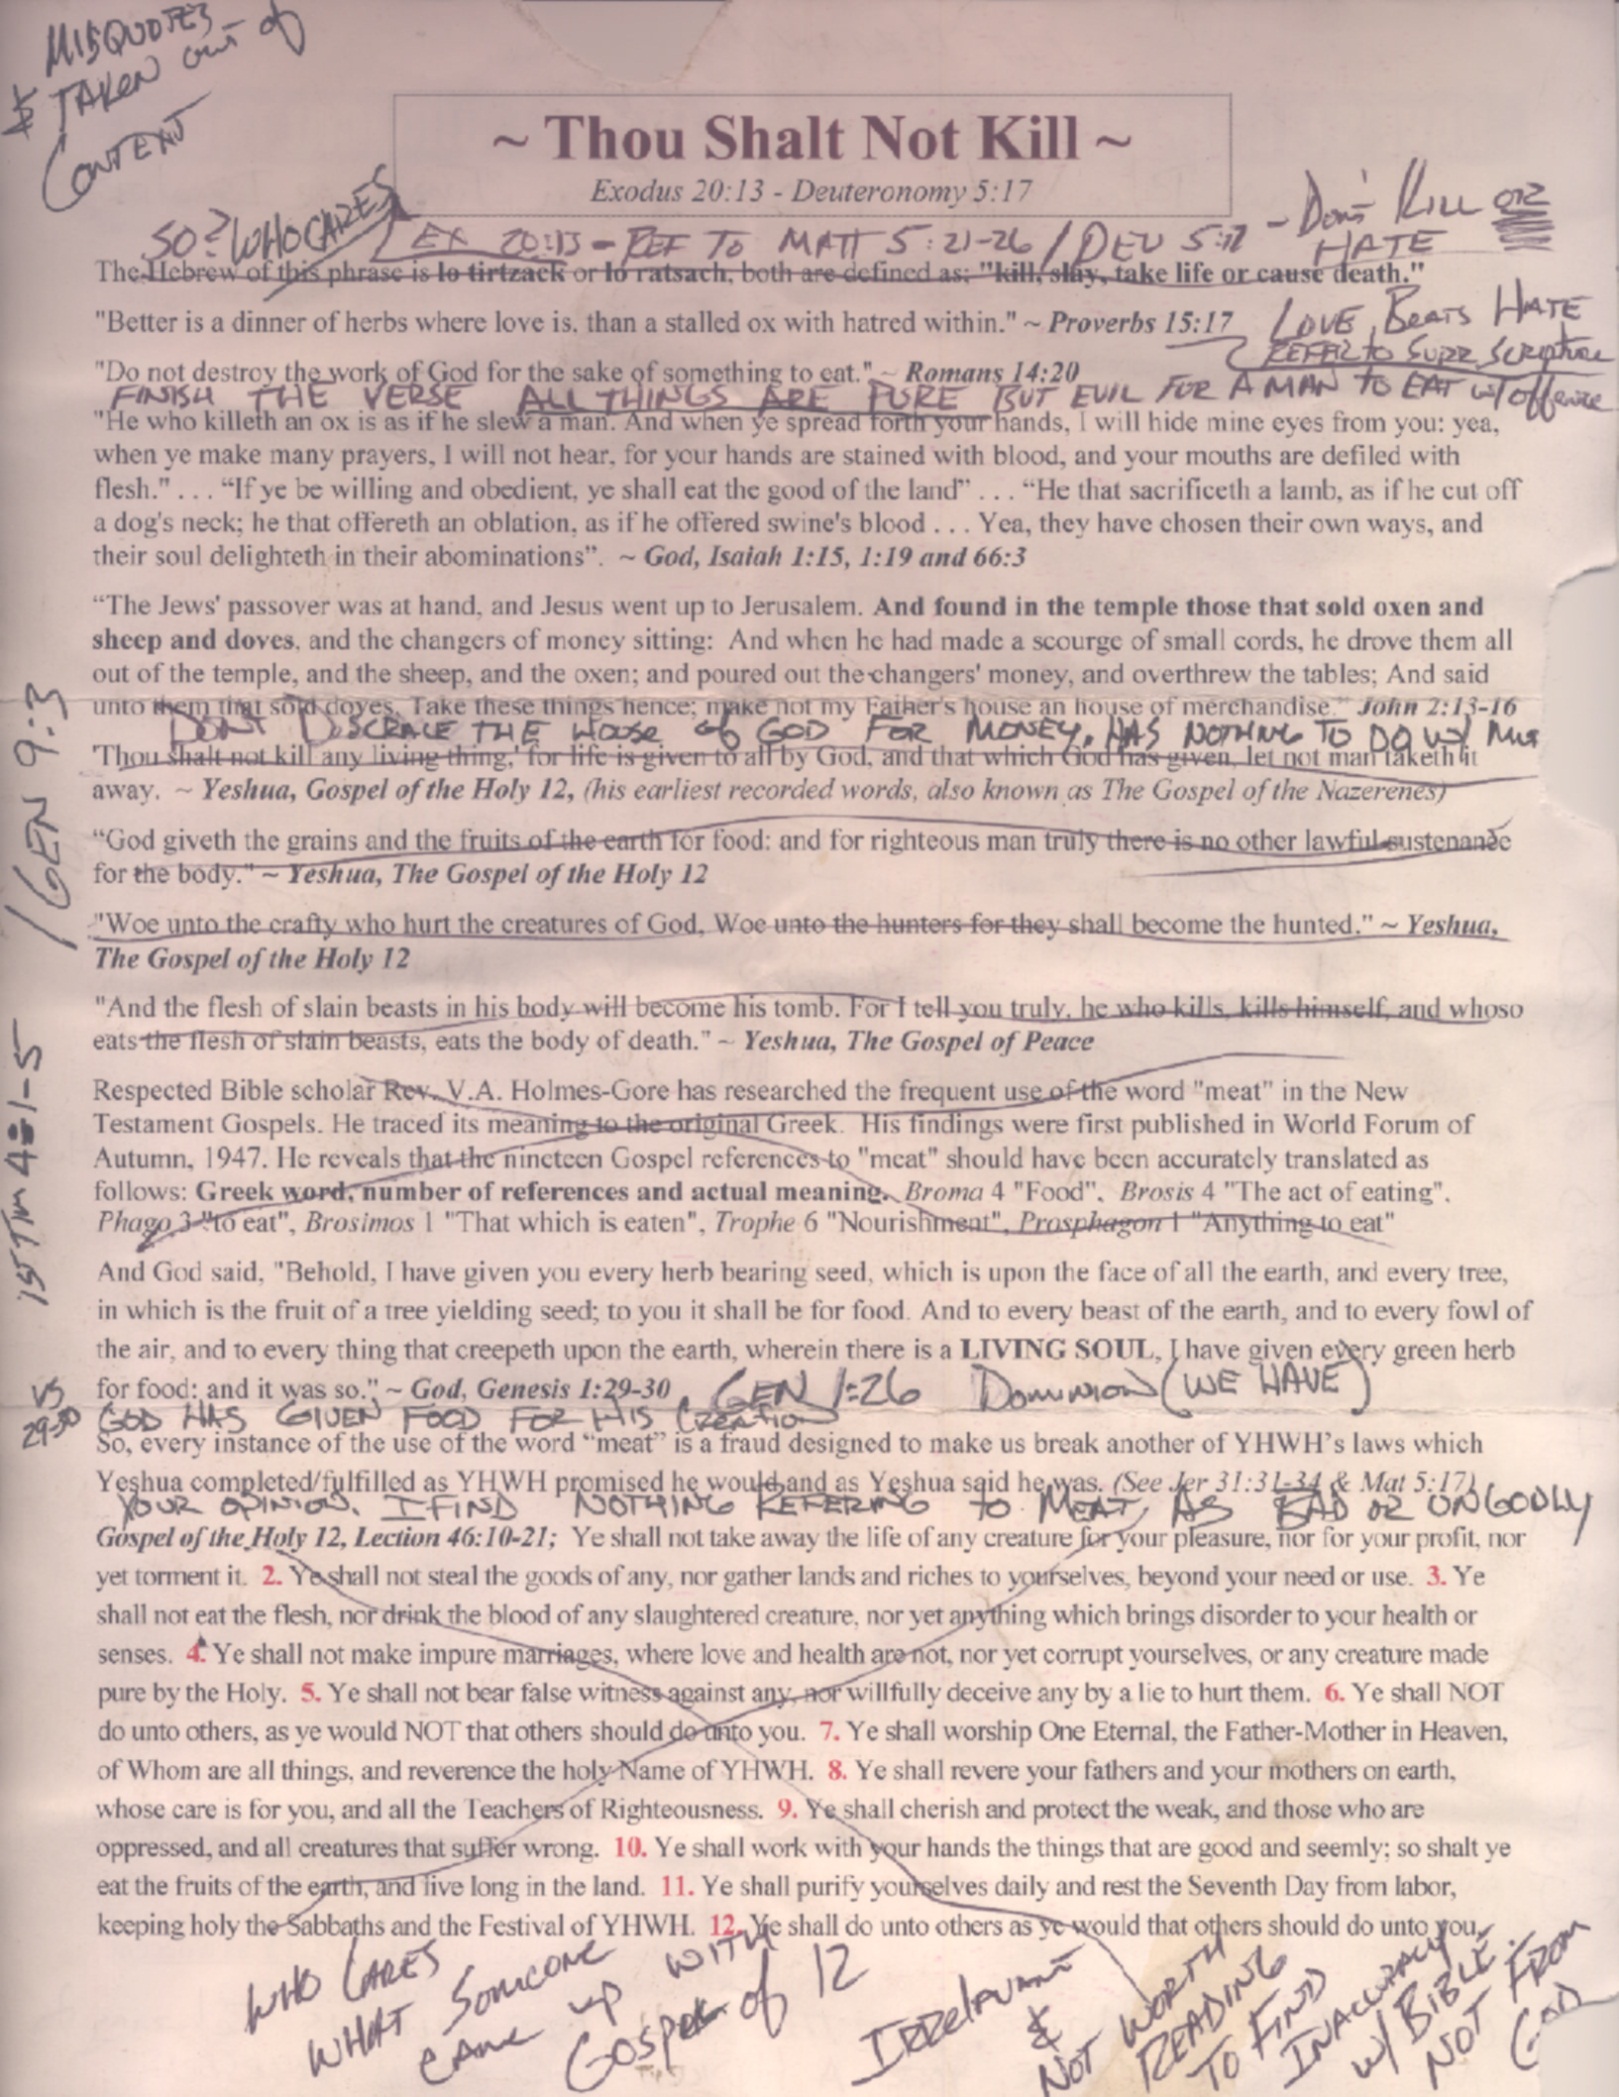 MISQUOTES
& TAKEN out of
CONTENT
~ Thou Shalt Not Kill ~
Exodus 20:13 - Deuteronomy 5:17
SO? WHO CARES
EX 20:13 - REF TO MATT 5:21-26 / DEU 5:17 - Don't KILL OR
HATE
The Hebrew of this phrase is lo tirtzack or lo ratsach, both are defined as: "kill, slay, take life or cause death."
"Better is a dinner of herbs where love is, than a stalled ox with hatred within." ~ Proverbs 15:17
LOVE Beats HATE
REFER to SURR Scripture
"Do not destroy the work of God for the sake of something to eat." ~ Romans 14:20
FINISH THE VERSE ALL THINGS ARE PURE BUT EVIL FOR A MAN TO EAT w/ offense
"He who killeth an ox is as if he slew a man. And when ye spread forth your hands, I will hide mine eyes from you: yea,
when ye make many prayers, I will not hear, for your hands are stained with blood, and your mouths are defiled with
flesh." . . . “If ye be willing and obedient, ye shall eat the good of the land” . . . “He that sacrificeth a lamb, as if he cut off
a dog's neck; he that offereth an oblation, as if he offered swine's blood . . . Yea, they have chosen their own ways, and
their soul delighteth in their abominations”. ~ God, Isaiah 1:15, 1:19 and 66:3
“The Jews' passover was at hand, and Jesus went up to Jerusalem. And found in the temple those that sold oxen and
sheep and doves, and the changers of money sitting: And when he had made a scourge of small cords, he drove them all
out of the temple, and the sheep, and the oxen; and poured out the changers' money, and overthrew the tables; And said
unto them that sold doves, Take these things hence; make not my Father's house an house of merchandise.” John 2:13-16
DON'T DISCRACE THE HOUSE of GOD FOR MONEY, HAS NOTHING TO DO w/
'Thou shalt not kill any living thing,' for life is given to all by God, and that which God has given, let not man taketh it
away. ~ Yeshua, Gospel of the Holy 12, (his earliest recorded words, also known as The Gospel of the Nazerenes)
GEN 9:3
“God giveth the grains and the fruits of the earth for food: and for righteous man truly there is no other lawful sustenance
for the body." ~ Yeshua, The Gospel of the Holy 12
"Woe unto the crafty who hurt the creatures of God, Woe unto the hunters for they shall become the hunted." ~ Yeshua,
The Gospel of the Holy 12
"And the flesh of slain beasts in his body will become his tomb. For I tell you truly, he who kills, kills himself, and whoso
eats the flesh of slain beasts, eats the body of death." ~ Yeshua, The Gospel of Peace
1ST Tm 4:1-5
Respected Bible scholar Rev. V.A. Holmes-Gore has researched the frequent use of the word "meat" in the New
Testament Gospels. He traced its meaning to the original Greek. His findings were first published in World Forum of
Autumn, 1947. He reveals that the nineteen Gospel references to "meat" should have been accurately translated as
follows: Greek word, number of references and actual meaning. Broma 4 "Food", Brosis 4 "The act of eating",
Phago 3 "to eat", Brosimos 1 "That which is eaten", Trophe 6 "Nourishment", Prosphagon 1 "Anything to eat"
And God said, "Behold, I have given you every herb bearing seed, which is upon the face of all the earth, and every tree,
in which is the fruit of a tree yielding seed; to you it shall be for food. And to every beast of the earth, and to every fowl of
the air, and to every thing that creepeth upon the earth, wherein there is a LIVING SOUL, I have given every green herb
for food: and it was so." ~ God, Genesis 1:29-30
GEN 1:26 DOMINION (WE HAVE)
VS
29-30
GOD HAS GIVEN FOOD FOR HIS CREATION
So, every instance of the use of the word “meat” is a fraud designed to make us break another of YHWH’s laws which
Yeshua completed/fulfilled as YHWH promised he would and as Yeshua said he was. (See Jer 31:31-34 & Mat 5:17)
YOUR OPINION. I FIND NOTHING REFERING to MEAT AS BAD OR UNGODLY
Gospel of the Holy 12, Lection 46:10-21; Ye shall not take away the life of any creature for your pleasure, nor for your profit, nor
yet torment it. 2. Ye shall not steal the goods of any, nor gather lands and riches to yourselves, beyond your need or use. 3. Ye
shall not eat the flesh, nor drink the blood of any slaughtered creature, nor yet anything which brings disorder to your health or
senses. 4. Ye shall not make impure marriages, where love and health are not, nor yet corrupt yourselves, or any creature made
pure by the Holy. 5. Ye shall not bear false witness against any, nor willfully deceive any by a lie to hurt them. 6. Ye shall NOT
do unto others, as ye would NOT that others should do unto you. 7. Ye shall worship One Eternal, the Father-Mother in Heaven,
of Whom are all things, and reverence the holy Name of YHWH. 8. Ye shall revere your fathers and your mothers on earth,
whose care is for you, and all the Teachers of Righteousness. 9. Ye shall cherish and protect the weak, and those who are
oppressed, and all creatures that suffer wrong. 10. Ye shall work with your hands the things that are good and seemly; so shalt ye
eat the fruits of the earth, and live long in the land. 11. Ye shall purify yourselves daily and rest the Seventh Day from labor,
keeping holy the Sabbaths and the Festival of YHWH. 12. Ye shall do unto others as ye would that others should do unto you.
WHO CARES
WHAT SOMEONE
CAME up WITH
GOSPEL of 12
IRRelevant
&
NOT WORTH
READING
TO FIND
INACURACY
w/ BIBLE.
NOT FROM
GOD